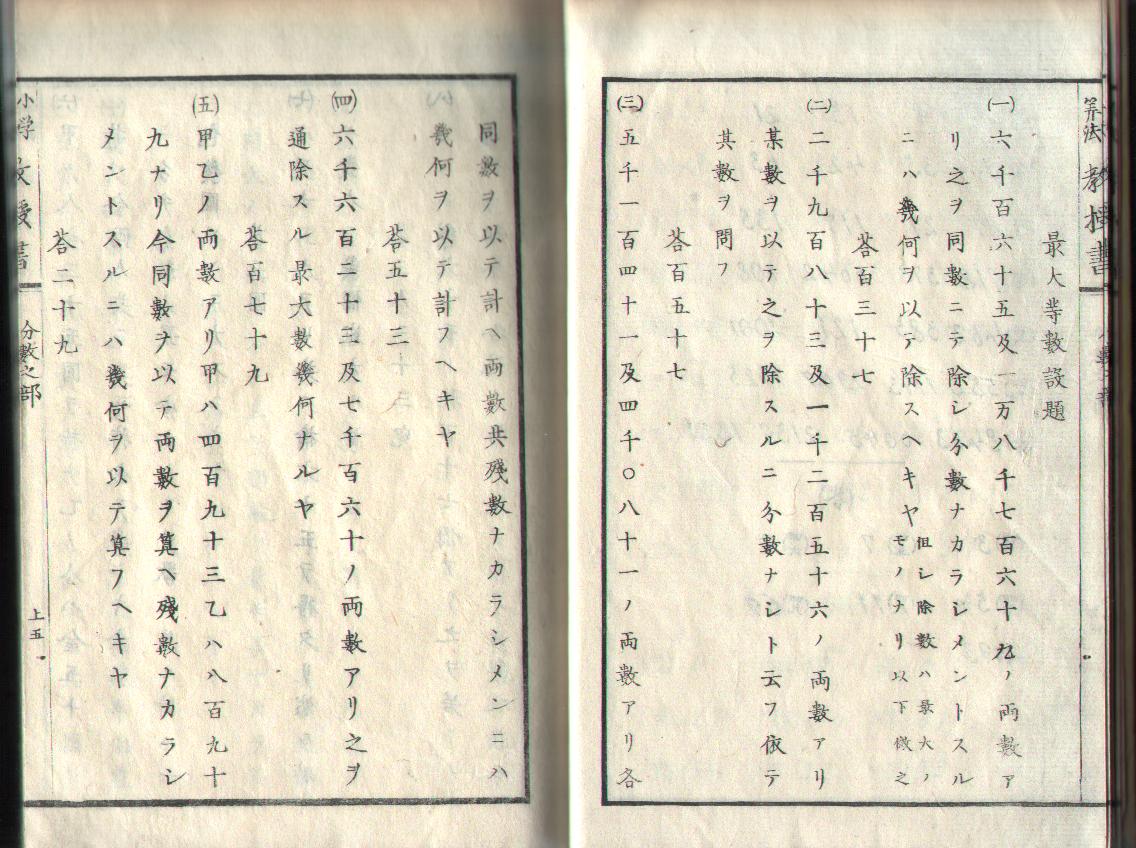 最大等數設題
㈠六千百六十五及一万八千七百六十九ノ両數ア
リ之ヲ同數ニテ除シ分數ナカラシメントスル
ニハ幾何ヲ以テ除スヘキヤ但シ除數ハ最大ノモノナリ以下傚之
荅百三十七
㈡二千九百八十三及一千二百五十六ノ両數アリ
某數ヲ以テ之ヲ除スルニ分數ナシト云フ依テ
其數ヲ問フ
荅百五十七
㈢五千一百四十一及四千〇八十一ノ両數アリ各
同數ヲ以テ計ヘ両數共殘數ナカラシメンニハ
幾何ヲ以テ計フヘキヤ
荅五十三
㈣六千六百二十三及七千百六十ノ両數アリ之ヲ
通除スル最大數幾何ナルヤ
荅百七十九
㈤甲乙ノ両數アリ甲ハ四百九十三乙ハ八百九十
九ナリ今同數ヲ以テ両數ヲ算ヘ殘數ナカラシ
メントスルニハ幾何ヲ以テ算フヘキヤ
荅二十九
小学教授書
分數之部
上五